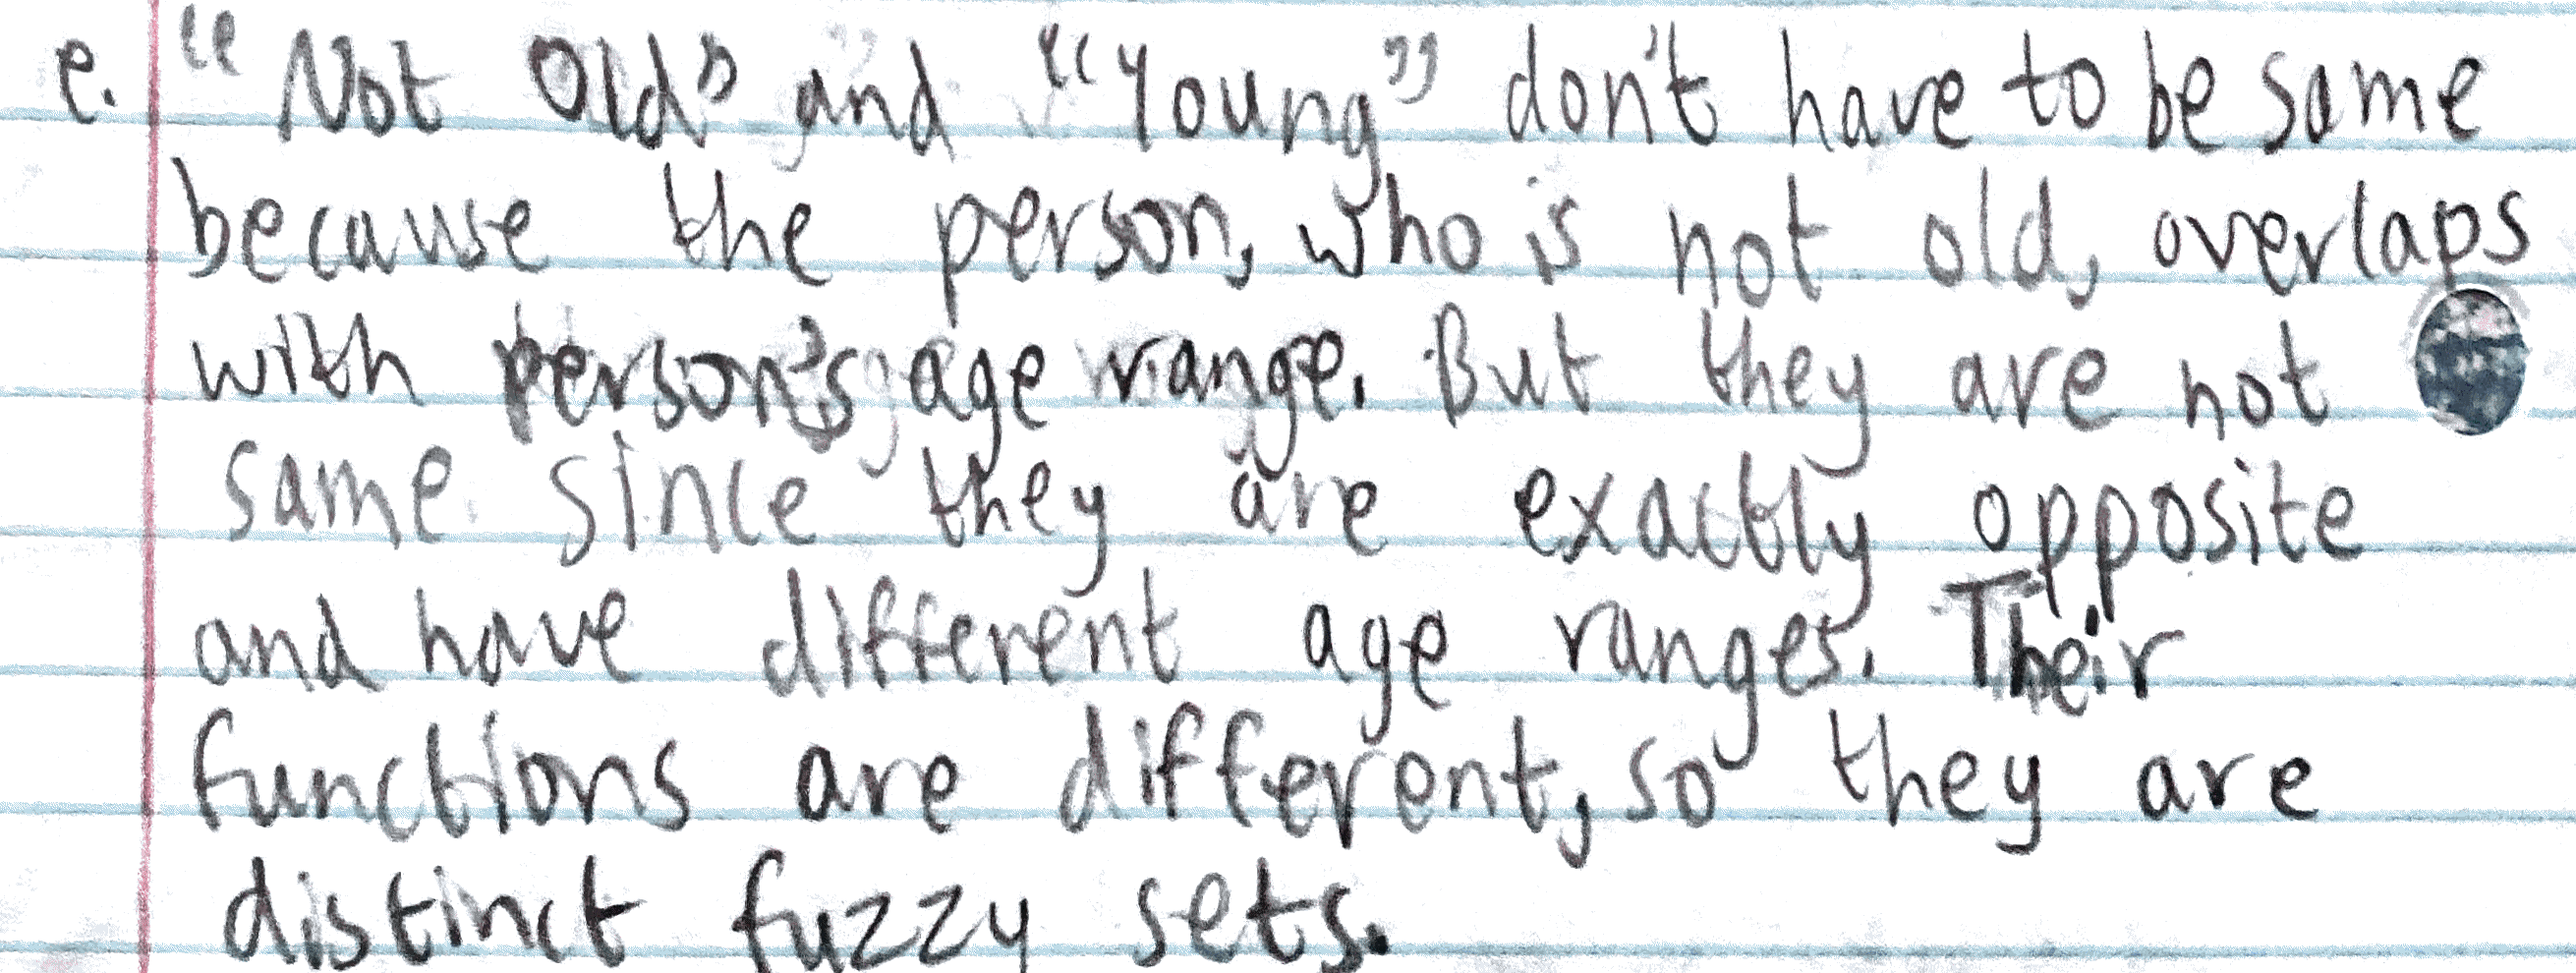 e. "Not Old" and "Young" don't have to be same
because the person, who is not old, overlaps
with person's age range. But they are not
same since they are exactly opposite
and have different age ranges. Their
functions are different, so they are
distinct fuzzy sets.